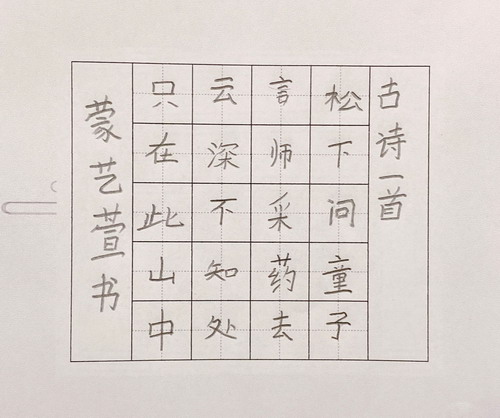 古诗一首
松下问童子
言师采药去
只在此山中
云深不知处
蒙艺萱书